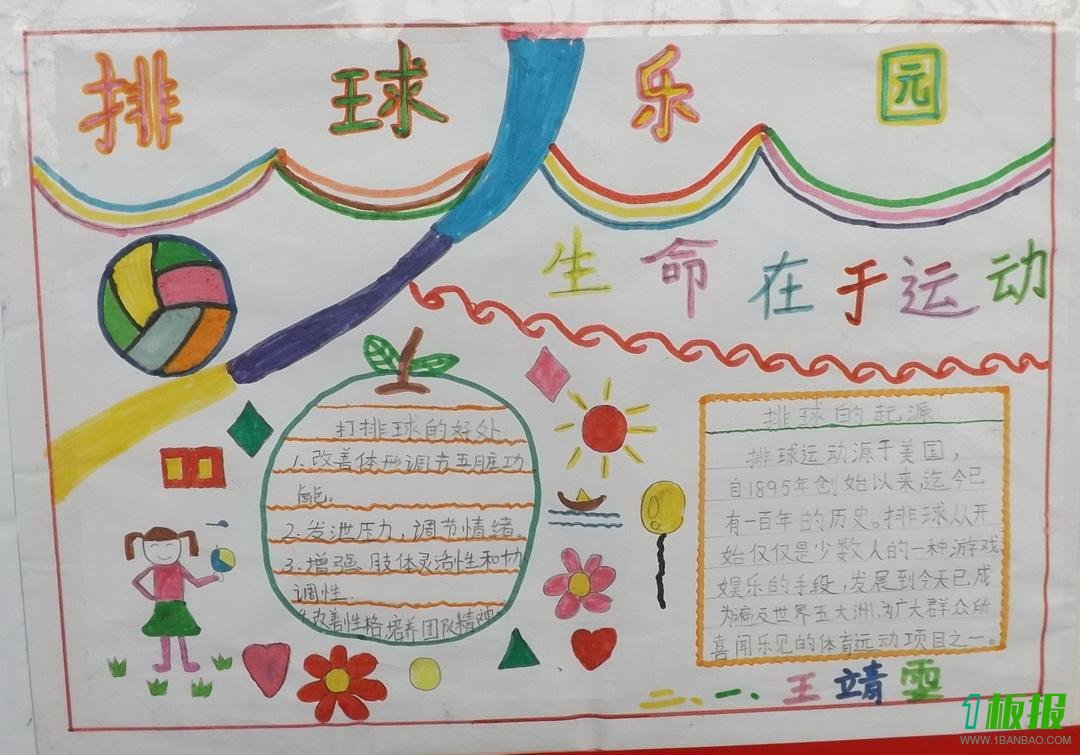 排球乐园
生命在于运动
打排球的好处
1、改善体形调节五脏功
能。
2、发泄压力,调节情绪。
3、增强肢体灵活性和协
调性.
改善性格,培养团队精神
排球的起源
排球运动源于美国,
自1895年创始以来,迄今已
有一百年的历史。排球从开
始仅仅是少数人的一种游戏、
娱乐的手段,发展到今天已成
为遍及世界五大洲,为广大群众所
喜闻乐见的体育运动项目之一。
二、一、王靖雯
1板报
WWW.1BANBAO.COM